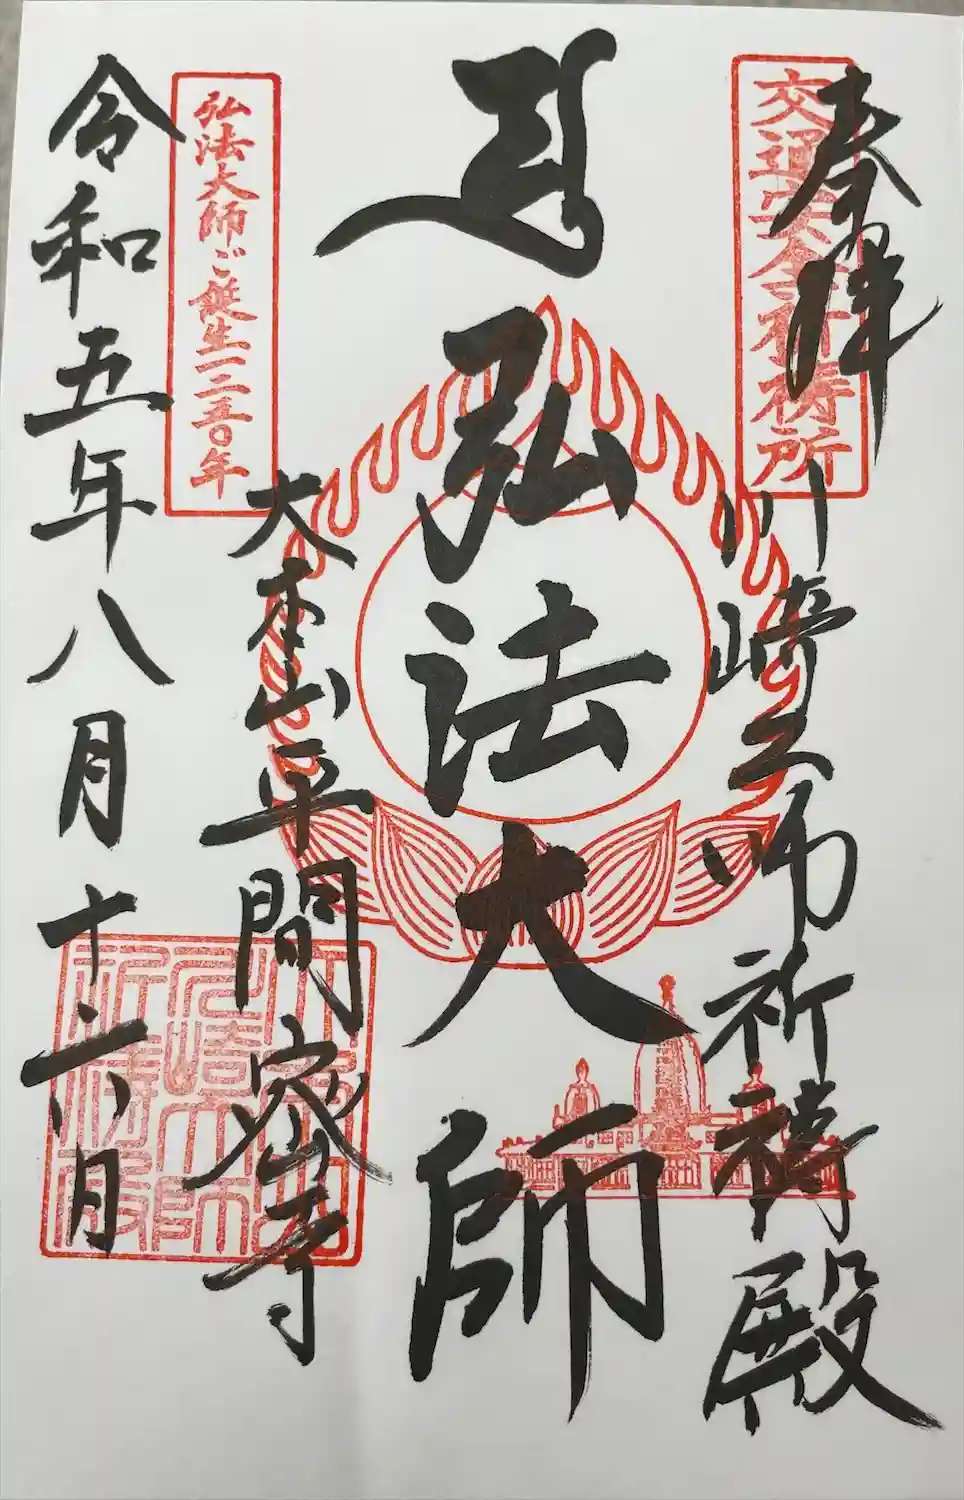 奉拝
交通安全祈祷所
川崎大師祈祷殿
弘法大師
大本山平間寺
弘法大師ご誕生一二五〇年
令和五年八月十六日